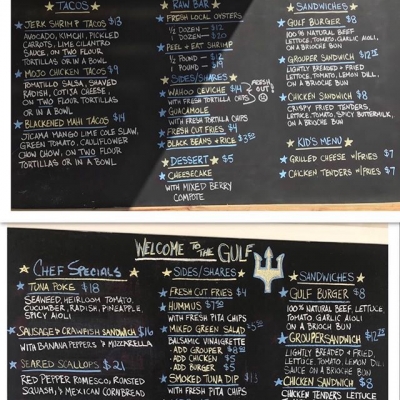 TACOS
★ JERK SHRIMP TACOS $13
AVOCADO, KIMCHI, PICKLED
CARROTS, LIME CILANTRO
SAUCE, ON TWO FLOUR
TORTILLAS OR IN A BOWL
★ MOJO CHICKEN TACOS $9
TOMATILLO SALSA, SHAVED
RADISH, COTIJA CHEESE,
ON TWO FLOUR TORTILLAS
OR IN A BOWL
★ BLACKENED MAHI TACOS $14
JICAMA MANGO LIME COLE SLAW,
GREEN TOMATO, CAULIFLOWER
CHOW CHOW, ON TWO FLOUR
TORTILLAS OR IN A BOWL
RAW BAR
★ FRESH LOCAL OYSTERS
1/2 DOZEN - $12
1 DOZEN - $20
★ PEEL + EAT SHRIMP
1/2 POUND - $12
1 POUND -
SIDES/SHARES
★ WAHOO CEVICHE $14
WITH FRESH TORTILLA CHIPS
FRESH
OUT!
★ GUACAMOLE
WITH FRESH TORTILLA CHIPS
★ FRESH CUT FRIES $4
★ BLACK BEANS + RICE $3.50
DESSERT ★ $5
★ CHEESECAKE
WITH MIXED BERRY
COMPOTE
SANDWICHES
★ GULF BURGER $8
100% NATURAL BEEF,
LETTUCE, TOMATO, GARLIC AIOLI,
ON A BRIOCHE BUN
★ GROUPER SANDWICH
LIGHTLY BREADED + FRIED
LETTUCE, TOMATO, LEMON DILL,
ON A BRIOCHE BUN
★ CHICKEN SANDWICH $8
CRISPY FRIED TENDERS,
LETTUCE, TOMATO, SPICY BUTTERMILK,
ON A BRIOCHE BUN
KID'S MENU
★ GRILLED CHEESE W/FRIES $7
★ CHICKEN TENDERS W/FRIES $7
WELCOME TO THE GULF
★ CHEF SPECIALS ★
★ TUNA POKE $18
SEAWEED, HEIRLOOM TOMATO,
CUCUMBER, RADISH, PINEAPPLE,
SPICY AIOLI
★ SAUSAGE + CRAWFISH SANDWICH $16
WITH BANANA PEPPERS + MOZZARELLA
★ SEARED SCALLOPS $21
RED PEPPER ROMESCO, ROASTED
SQUASH, + MEXICAN CORNBREAD
SIDES/SHARES
★ FRESH CUT FRIES $4
★ HUMMUS $7.50
WITH FRESH PITA CHIPS
★ MIXED GREEN SALAD
BALSAMIC VINAIGRETTE
★ ADD GROUPER
★ ADD CHICKEN $5
★ ADD BURGER $5
★ SMOKED TUNA DIP $13
WITH FRESH PITA CHIPS
SANDWICHES
★ GULF BURGER $8
100% NATURAL BEEF, LETTUCE,
TOMATO, GARLIC AIOLI
ON A BRIOCH BUN
★ GROUPER SANDWICH
LIGHTLY BREADED + FRIED,
LETTUCE, TOMATO, LEMON DILL
SAUCE ON A BRIOCHE BUN
★ CHICKEN SANDWICH $8
CHICKEN TENDERS, LETTUCE